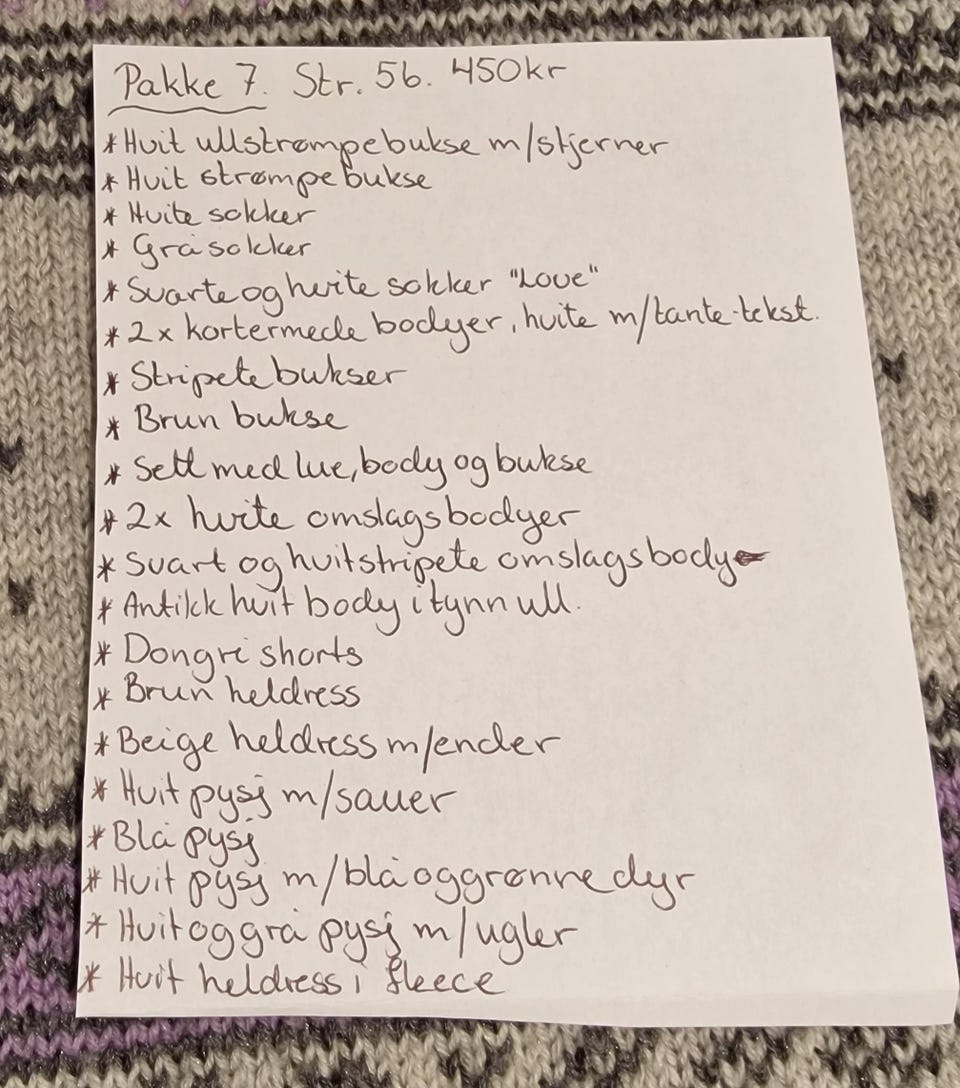 Pakke 7. Str. 56. 450kr
* Hvit ullstrømpebukse m/stjerner
* Hvit strømpebukse
* Hvite sokker
* Grå sokker
* Svarte og hvite sokker "Love"
* 2x kortermede bodyer, hvite m/tante-tekst.
* Stripete bukser
* Brun bukse
* Sett med lue, body og bukse
* 2x hvite omslagsbodyer
* Svart og hvitstripete omslagsbody
* Antikk hvit body i tynn ull.
* Dongri shorts
* Brun heldress
* Beige heldress m/ender
* Hvit pysj m/sauer
* Blå pysj
* Hvit pysj m/blå og grønne dyr
* Hvit og grå pysj m/ugler
* Hvit heldress i fleece